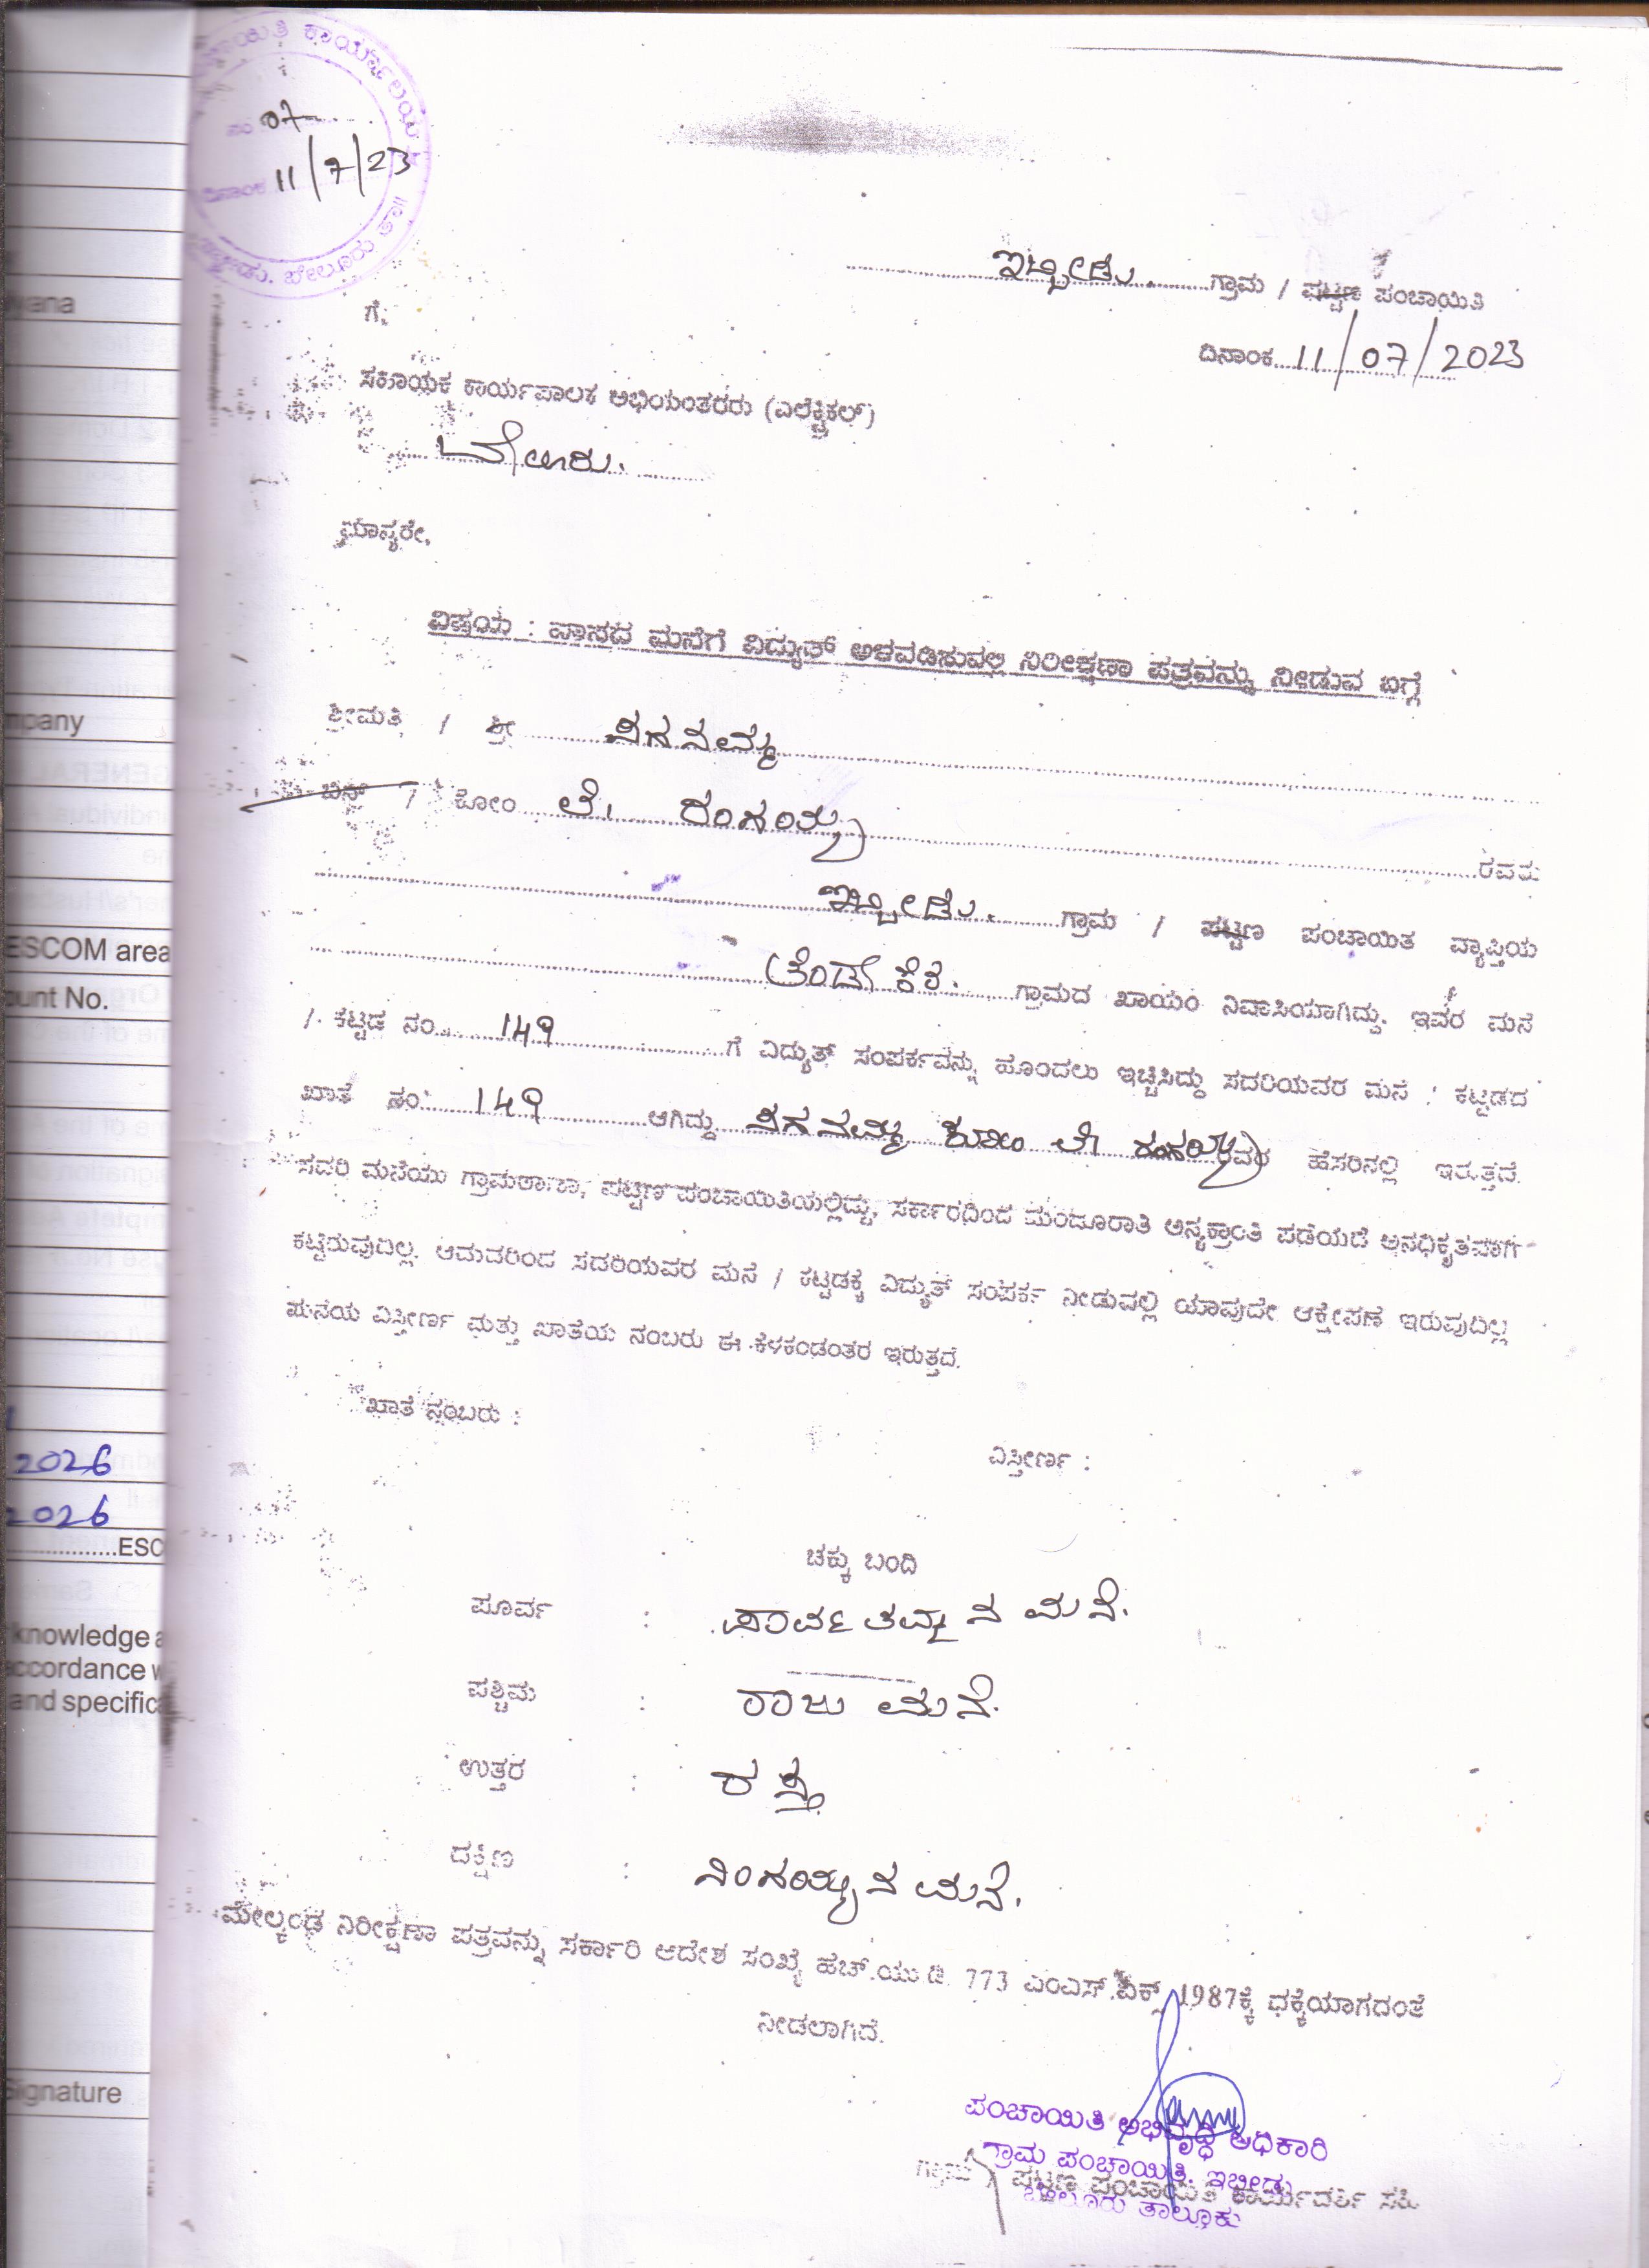 ಕಾರ್ಯಾಲಯ
ನಂ 07
ದಿನಾಂಕ 11/7/23
ಬೇಲೂರು ತಾ||
ಇಬ್ಬೀಡು. ಗ್ರಾಮ / ಪಟ್ಟಣ ಪಂಚಾಯಿತಿ
ದಿನಾಂಕ 11/07/2023
ಗೆ,
ಸಹಾಯಕ ಕಾರ್ಯಪಾಲಕ ಅಭಿಯಂತರರು (ಎಲೆಕ್ಟ್ರಿಕಲ್)
ಬೇಲೂರು.
ಮಾನ್ಯರೇ,
ವಿಷಯ : ವಾಸದ ಮನೆಗೆ ವಿದ್ಯುತ್ ಅಳವಡಿಸುವಲ್ಲಿ ನಿರೀಕ್ಷಣಾ ಪತ್ರವನ್ನು ನೀಡುವ ಬಗ್ಗೆ
ಶ್ರೀಮತಿ / ಶ್ರೀ
ಬಿನ್ / ಕೋಂ ಲೇ. ರಂಗಯ್ಯ ರವರು
ಇಬ್ಬೀಡು. ಗ್ರಾಮ / ಪಟ್ಟಣ ಪಂಚಾಯಿತ ವ್ಯಾಪ್ತಿಯ
ಗ್ರಾಮದ ಖಾಯಂ ನಿವಾಸಿಯಾಗಿದ್ದು, ಇವರ ಮನೆ
/ ಕಟ್ಟಡ ನಂ. 149 ಗೆ ವಿದ್ಯುತ್ ಸಂಪರ್ಕವನ್ನು ಹೊಂದಲು ಇಚ್ಚಿಸಿದ್ದು ಸದರಿಯವರ ಮನೆ / ಕಟ್ಟಡದ
ಖಾತೆ ನಂ: 149 ಆಗಿದ್ದು ಕೋಂ ಲೇ ರಂಗಯ್ಯ ರವರ ಹೆಸರಿನಲ್ಲಿ ಇರುತ್ತದೆ.
ಸದರಿ ಮನೆಯು ಗ್ರಾಮಠಾಣಾ, ಪಟ್ಟಣ ಪಂಚಾಯಿತಿಯಲ್ಲಿದ್ದು, ಸರ್ಕಾರದಿಂದ ಮಂಜೂರಾತಿ ಅನ್ಯಕ್ರಾಂತಿ ಪಡೆಯದೆ ಅನಧಿಕೃತವಾಗಿ
ಕಟ್ಟಿರುವುದಿಲ್ಲ. ಆದುದರಿಂದ ಸದರಿಯವರ ಮನೆ / ಕಟ್ಟಡಕ್ಕೆ ವಿದ್ಯುತ್ ಸಂಪರ್ಕ ನೀಡುವಲ್ಲಿ ಯಾವುದೇ ಆಕ್ಷೇಪಣೆ ಇರುವುದಿಲ್ಲ
ಮನೆಯ ವಿಸ್ತೀರ್ಣ ಮತ್ತು ಖಾತೆಯ ನಂಬರು ಈ ಕೆಳಕಂಡಂತರ ಇರುತ್ತದೆ.
ಖಾತೆ ನಂಬರು :
ವಿಸ್ತೀರ್ಣ :
ಚಕ್ಕು ಬಂದಿ
ಪೂರ್ವ : ಪಾರ್ವತಮ್ಮನ ಮನೆ.
ಪಶ್ಚಿಮ : ರಾಜು ಮನೆ.
ಉತ್ತರ : ರಸ್ತೆ
ದಕ್ಷಿಣ : ನಿಂಗಯ್ಯನ ಮನೆ.
ಮೇಲ್ಕಂಡ ನಿರೀಕ್ಷಣಾ ಪತ್ರವನ್ನು ಸರ್ಕಾರಿ ಆದೇಶ ಸಂಖ್ಯೆ ಹೆಚ್.ಯು.ಡಿ. 773 ಎಂಎನ್.ಎಕ್ಸ್ 1987ಕ್ಕೆ ಧಕ್ಕೆಯಾಗದಂತೆ
ನೀಡಲಾಗಿದೆ.
ಪಂಚಾಯಿತಿ ಅಭಿವೃದ್ಧಿ ಅಧಿಕಾರಿ
ಗ್ರಾಮ ಪಂಚಾಯಿತಿ. ಇಬ್ಬೀಡು
ಬೇಲೂರು ತಾಲ್ಲೂಕು
ಗ್ರಾಮ / ಪಟ್ಟಣ ಪಂಚಾಯಿತಿ ಕಾರ್ಯದರ್ಶಿ ಸಹಿ
ESCOM area
ount No.
2026
2026
ESC
knowledge
ccordance
and specific
Signature